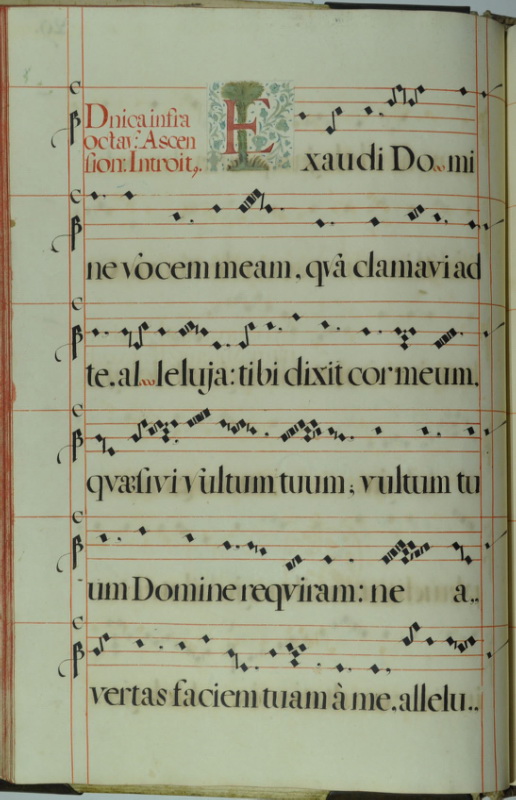 Dnica infra
octav: Ascen
sion: Introit,
Exaudi Domi
ne vocem meam, qvà clamavi ad
te. alleluja: tibi dixit cor meum.
qvæsivi vultum tuum; vultum tu
um Domine reqviram: ne a..
vertas faciem tuam à me. allelu..